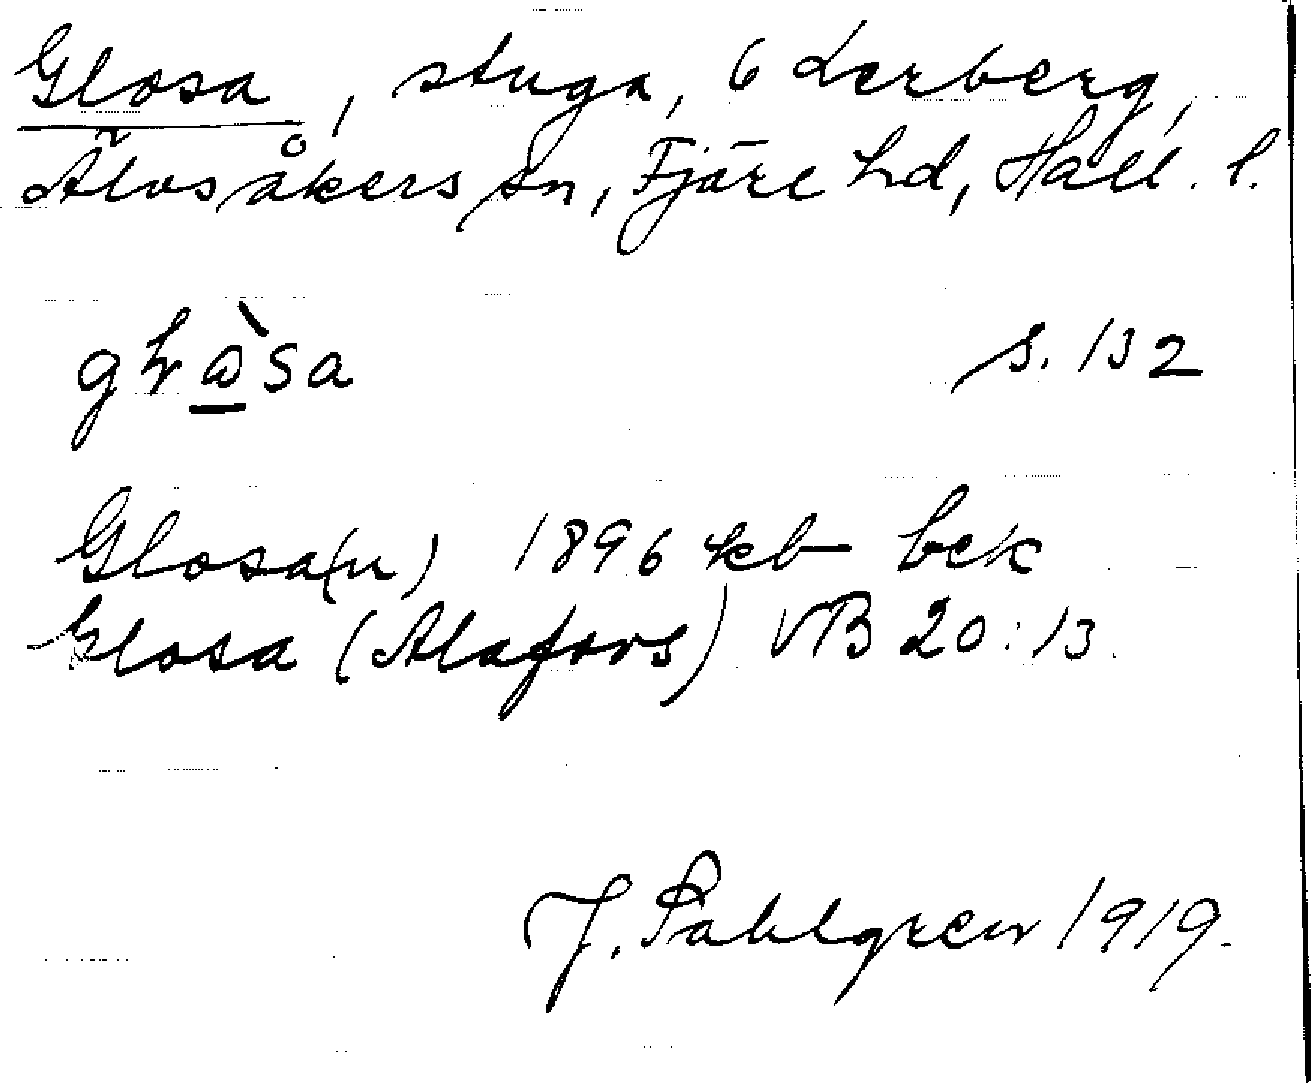 Glosa, stuga, 6 Lerberg,
Älvsåkers sn, Fjäre hd, Hall. l.
s. 132
Glosa(n) 1896 kb bek
Glosa (Alafors) VB 20:13.
J. Sahlgren 1919.